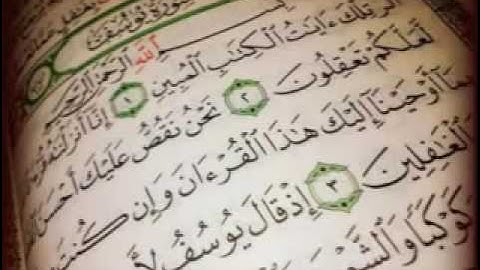 سُورَةُ يُوسُفَ
بِسْمِ ٱللَّهِ ٱلرَّحْمَٰنِ ٱلرَّحِيمِ
الٓر تِلْكَ ءَايَٰتُ ٱلْكِتَٰبِ ٱلْمُبِينِ ١ إِنَّآ أَنزَلْنَٰهُ
لَّعَلَّكُمْ تَعْقِلُونَ ٢ نَحْنُ نَقُصُّ عَلَيْكَ أَحْسَنَ
بِمَآ أَوْحَيْنَآ إِلَيْكَ هَٰذَا ٱلْقُرْءَانَ وَإِن كُنتَ
ٱلْغَٰفِلِينَ ٣ إِذْ قَالَ يُوسُفُ
كَوْكَبًا وَٱلشَّمْ